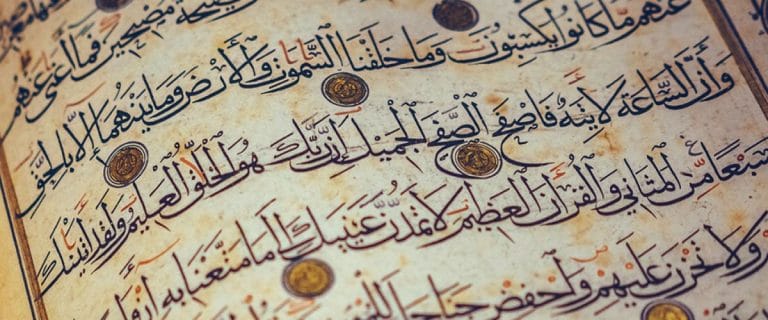 مصبحين فما أغنى
عنهم ما كانوا يكسبون وما خلقنا السموت والأرض وما بينهما إلا بالحق
وأن الساعة لآتية فاصفح الصفح الجميل إن ربك هو الخلق العليم ولقد آتينك
سبعا من المثاني والقرآن العظيم لا تمدن عينيك إلى ما متعنا به أزوا
ولا تحزن عليهم واخفض جناحك